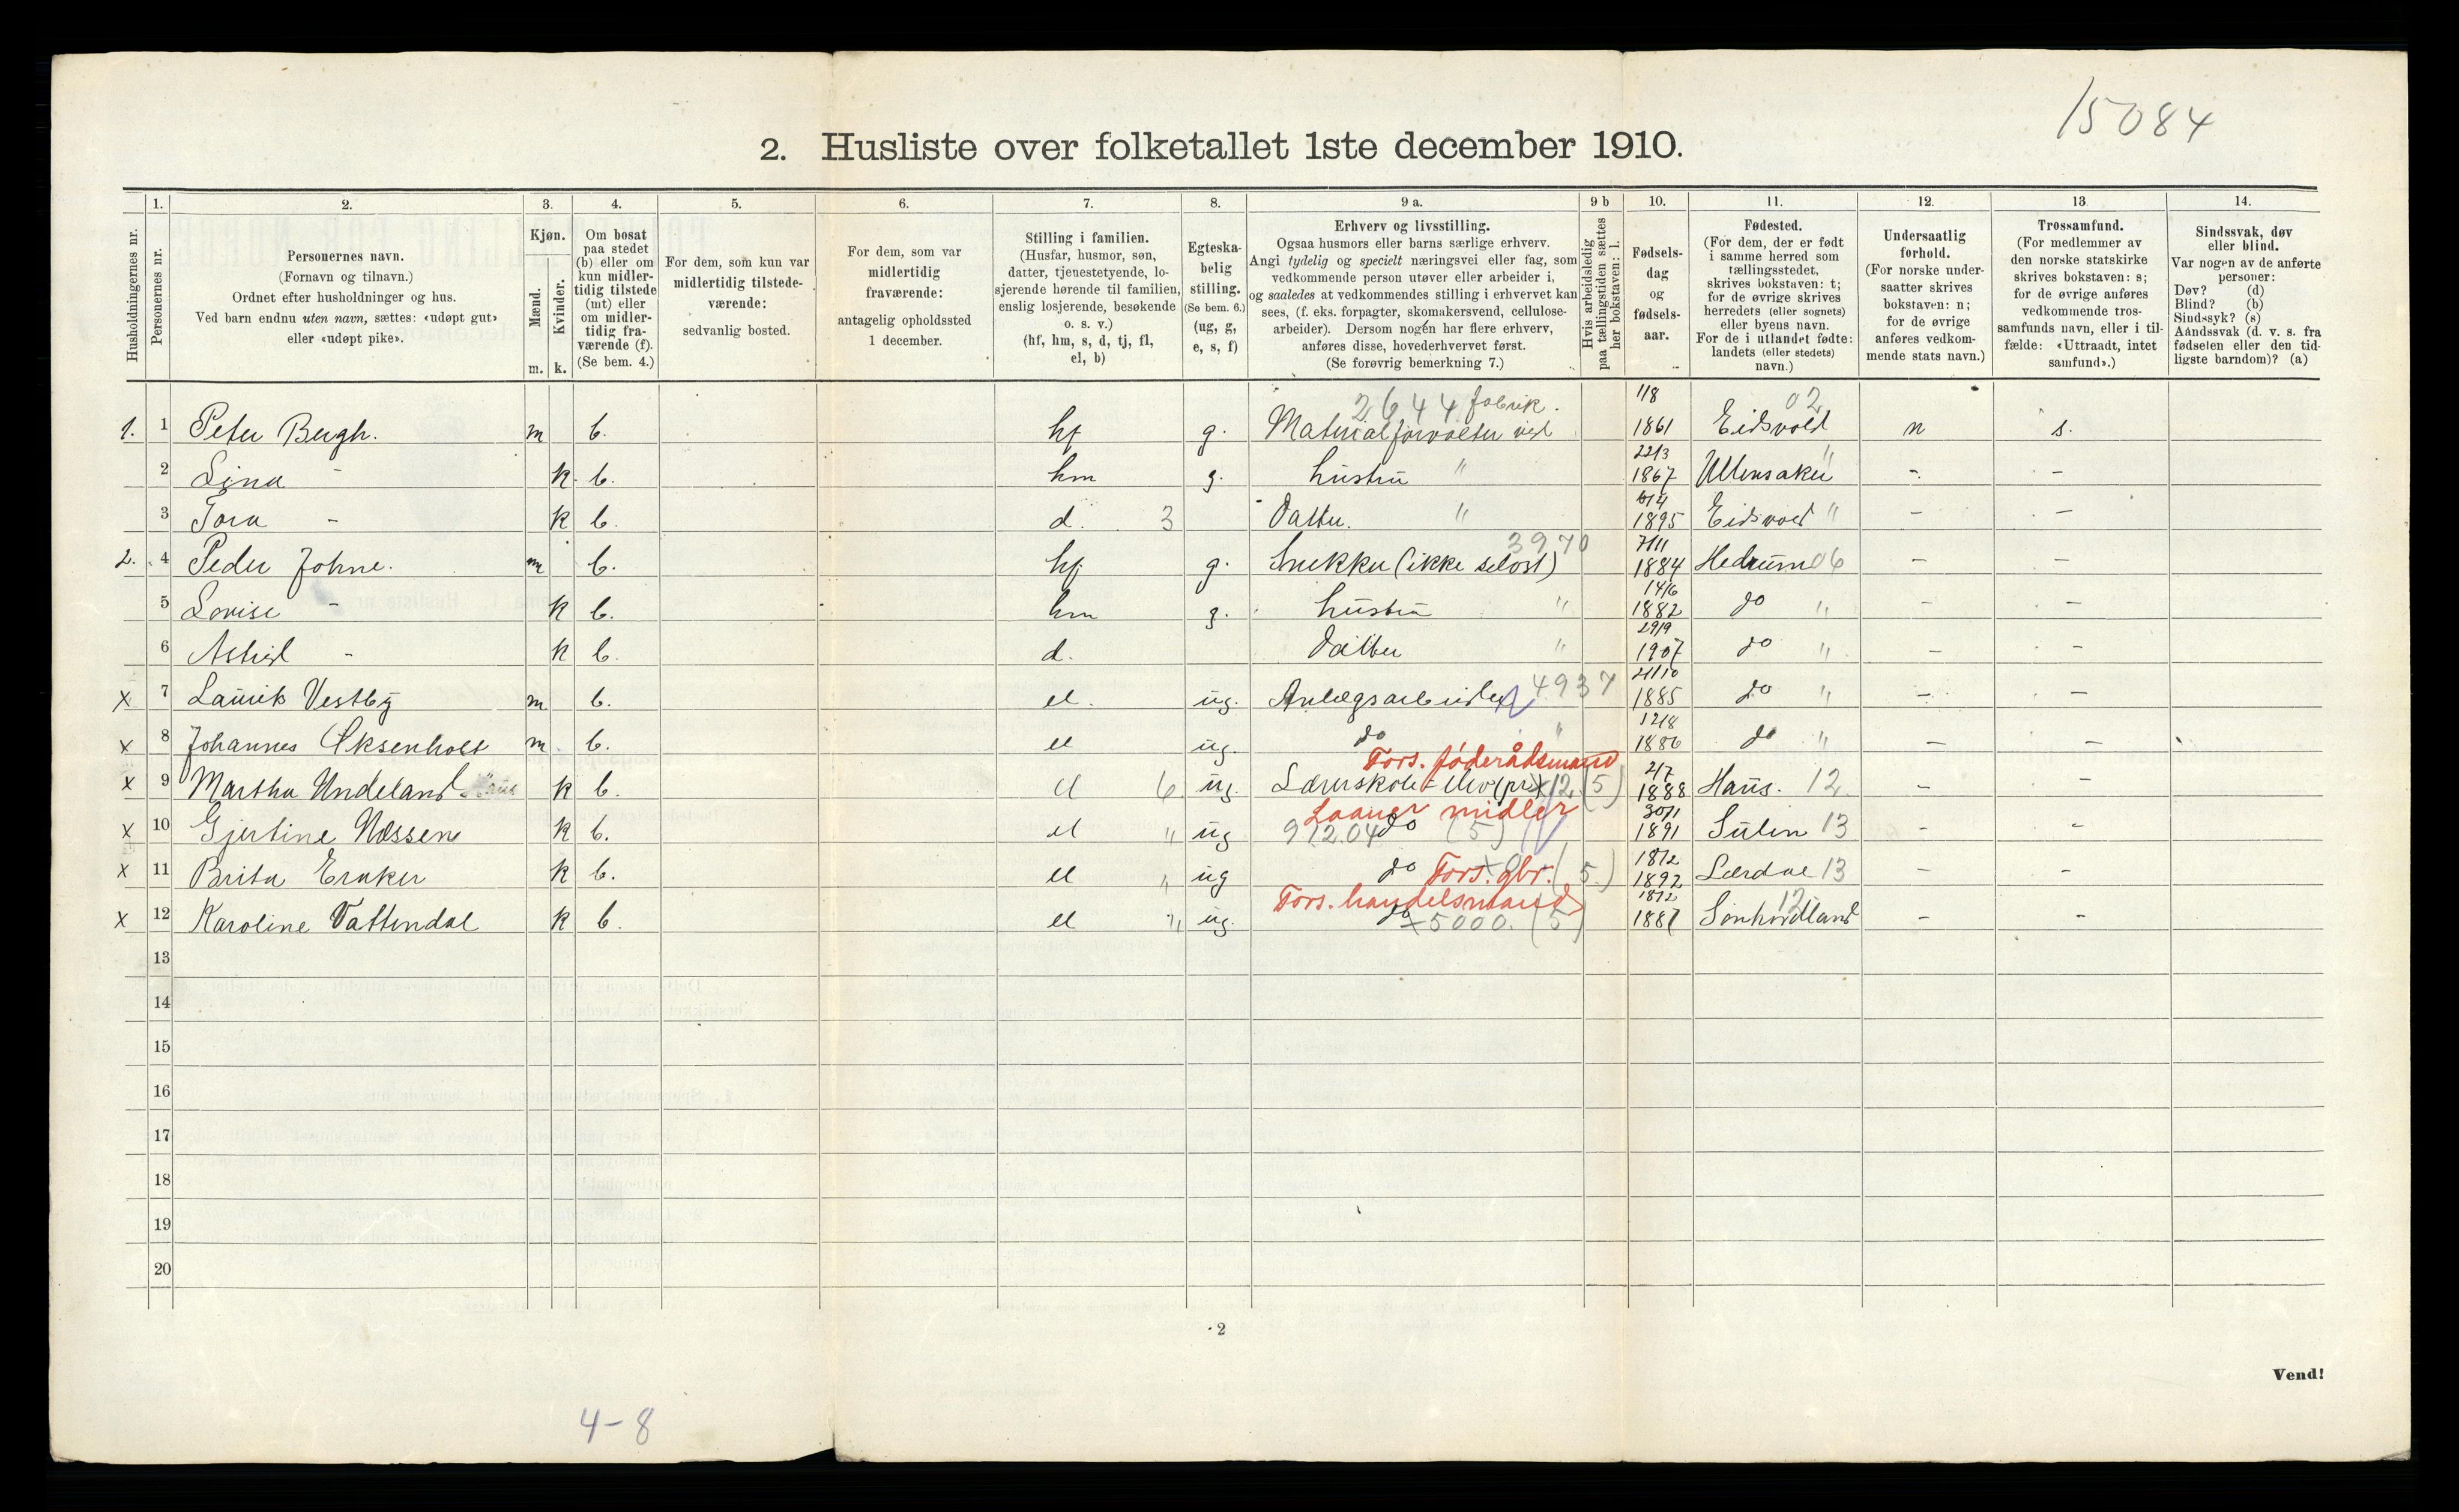 15084
2. Husliste over folketallet 1ste december 1910.
Husholdningernes nr.
1.
Personernes nr.
2.
Personernes navn.
(Fornavn og tilnavn.)
Ordnet efter husholdninger og hus.
Ved barn endnu uten navn, sættes: «udøpt gut»
eller «udøpt pike».
3.
Kjøn.
Mænd.
Kvinder.
m. k.
4.
Om bosat
paa stedet
(b) eller om
kun midler-
tidig tilstede
(mt) eller
om midler-
tidig fra-
værende (f).
(Se bem. 4.)
5.
For dem, som kun var
midlertidig tilstede-
værende:
sedvanlig bosted.
6.
For dem, som var
midlertidig
fraværende:
antagelig opholdssted
1 december.
7.
Stilling i familien.
(Husfar, husmor, søn,
datter, tjenestetyende, lo-
sjerende hørende til familien,
enslig losjerende, besøkende
o. s. v.)
(hf, hm, s, d, tj, fl,
el, b)
8.
Egteska-
belig
stilling.
(Se bem. 6.)
(ug, g,
e, s, f)
9 a.
Erhverv og livsstilling.
Ogsaa husmors eller barns særlige erhverv.
Angi tydelig og specielt næringsvei eller fag, som
vedkommende person utøver eller arbeider i,
og saaledes at vedkommendes stilling i erhvervet kan
sees, (f. eks. forpagter, skomakersvend, cellulose-
arbeider). Dersom nogen har flere erhverv,
anføres disse, hovederhvervet først.
(Se forøvrig bemerkning 7.)
9 b
Hvis arbeidsledig
paa tællingstiden sættes
her bokstaven: l.
10.
Fødsels-
dag
og
fødsels-
aar.
11.
Fødested.
(For dem, der er født
i samme herred som
tællingsstedet,
skrives bokstaven: t;
for de øvrige skrives
herredets (eller sognets)
eller byens navn.
For de i utlandet fødte:
landets (eller stedets)
navn.)
12.
Undersaatlig
forhold.
(For norske under-
saatter skrives
bokstaven: n;
for de øvrige
anføres vedkom-
mende stats navn.)
13.
Trossamfund.
(For medlemmer av
den norske statskirke
skrives bokstaven: s;
for de øvrige anføres
vedkommende tros-
samfunds navn, eller i til-
fælde: «Uttraadt, intet
samfund».)
14.
Sindssvak, døv
eller blind.
Var nogen av de anførte
personer:
Døv? (d)
Blind? (b)
Sindssyk? (s)
Aandssvak (d. v. s. fra
fødselen eller den tid-
ligste barndom)? (a)
2644 fabrik. 1/8 02
1. 1 Peter Bergh. m b. hf g. Materialforvalter ved 1861 Eidsvold n s.
22/3
2 Lina - k b. hm g. hustru " 1867 Ullensaker " - -
3 Tora - k b. d. 3 Datter. " 1895 Eidsvold " - -
3970 7/11
2. 4 Peder Johne. m b. hf g. Snekker (ikke selvst) 1884 Hedrum 06 - -
14/6
5 Lovise - k b. hm g. hustru " 1882 do " - -
29/9
6 Astrid - k b. d. Datter " 1907 do " - -
x 7 Laurik Vestby m b. el. ug. Anlægsarbeider 4937 1885 do " - -
12/8
x 8 Johannes Oksenholt m b. el ug. do " 1886 do " - -
Fors. føderådsmand 2/7
x 9 Martha Undeland k b. el 6 ug. Lærerskole- 12 (5) 1888 Haus. 12 - -
Laaner midler
x 10 Gjertine Næssene k b. el " ug 91204 do (5) 1891 Sulen 13 - -
18/12
x 11 Brita Eraker k b. el " ug do Fors. gbr. (5) 1892 Lærdal 13 - -
Fors. handelsmand 18/12 12
x 12 Karoline Vattendal k b. el " ug. do 5000. (5) 1887 Sønhordland - -
13
14
15
16
17
18
19
20
2
Vend!
4-8